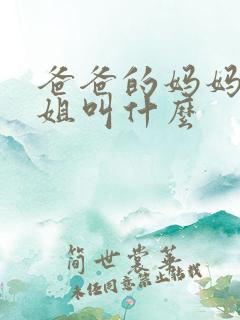 爸爸的妈妈
姐叫什麼
简世裳華
未经同意禁止转载